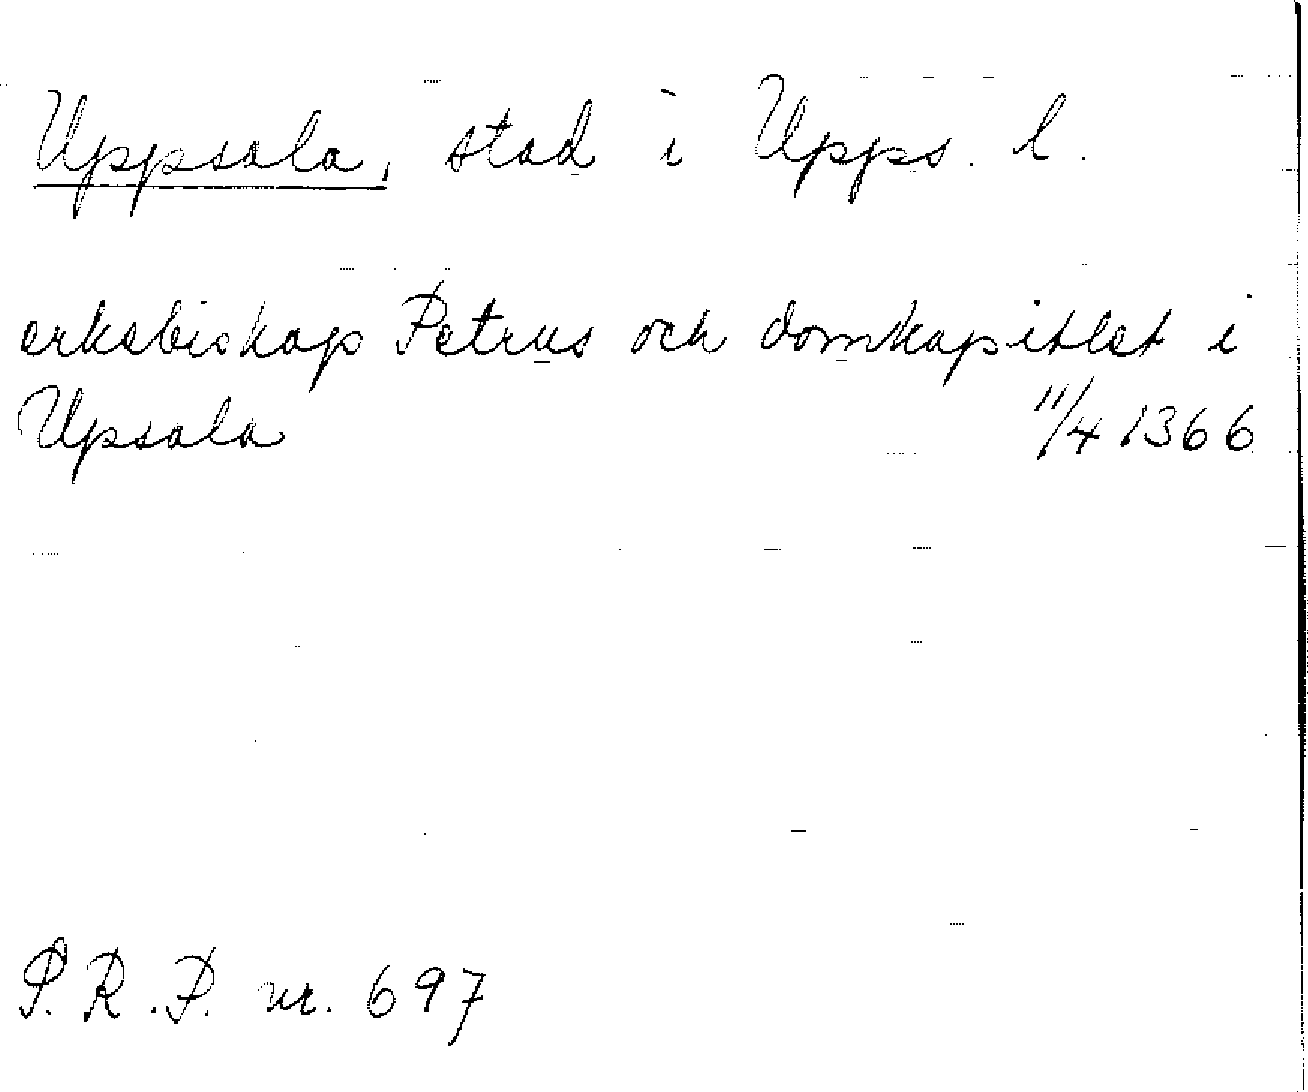 Uppsala, stad i Upps. l.
erkebiskop Petrus och domkapitlet i
Upsala 11/4 1366
S.R.P. nr. 697